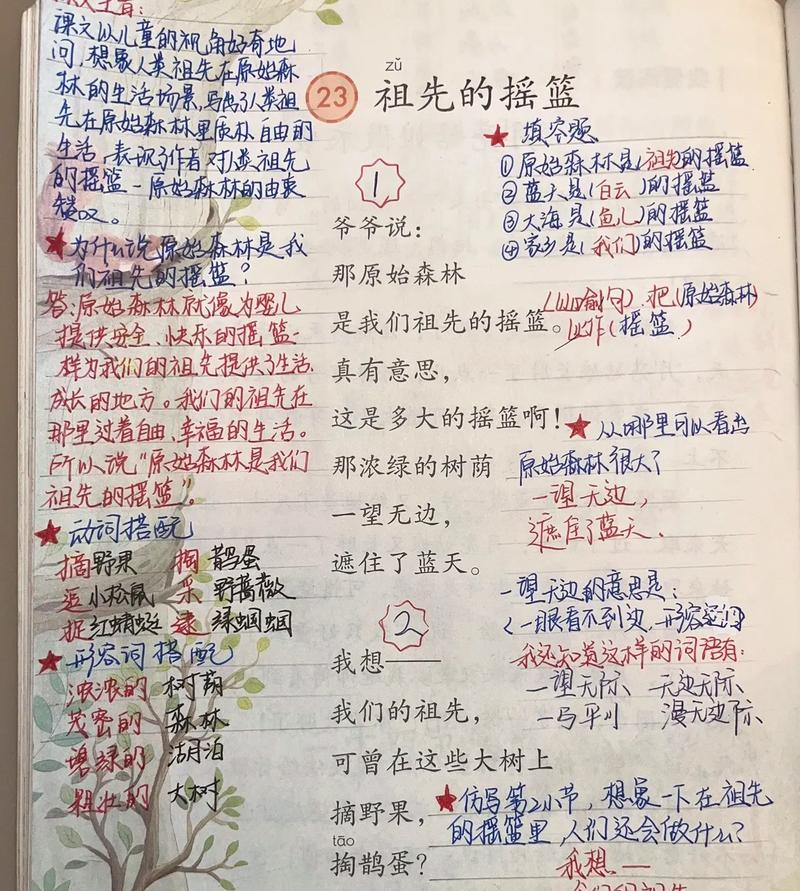 课文主旨:
课文以儿童的视角好奇地
问,想象人类祖先在原始森
林的生活场景,写出了人类祖
先在原始森林里质朴自由的
生活,表现了作者对人类祖先
的摇篮-原始森林的由衷
赞叹。
★为什么说原始森林是我
们祖先的摇篮?
答:原始森林就像为婴儿
提供安全、快乐的摇篮一
样为我们的祖先提供了生活、
成长的地方。我们的祖先在
那里过着自由、幸福的生活。
所以说"原始森林是我们
祖先的摇篮"。
★动词搭配
摘野果 掏鹊蛋
逗小松鼠 采野蔷薇
捉红蜻蜓 逮绿蝈蝈
★形容词搭配
浓浓的 树荫
茂密的 森林
碧绿的 湖泊
粗壮的 大树
zǔ
23 祖先的摇篮
1
爷爷说:
那原始森林
是我们祖先的摇篮。
真有意思,
这是多大的摇篮啊!
那浓绿的树荫
一望无边,
遮住了蓝天。
2
我想——
我们的祖先,
可曾在这些大树上
摘野果,
tāo
掏鹊蛋?
★填空题
①原始森林是(祖先)的摇篮
②蓝天是(白云)的摇篮
③大海是(鱼儿)的摇篮
④家乡是(我们)的摇篮
(比喻句)把(原始森林)
比作(摇篮)
★从哪里可以看出
原始森林很大?
一望无边,
遮住了蓝天.
一望无边的意思是:
(一眼看不到边,形容空阔)
我还知道这样的词语有:
一望无际、天边无际、
一马平川 漫无边际、
★仿写第2小节,想象一下在祖先
的摇篮里,人们还会做什么?
我想—
我们的祖先